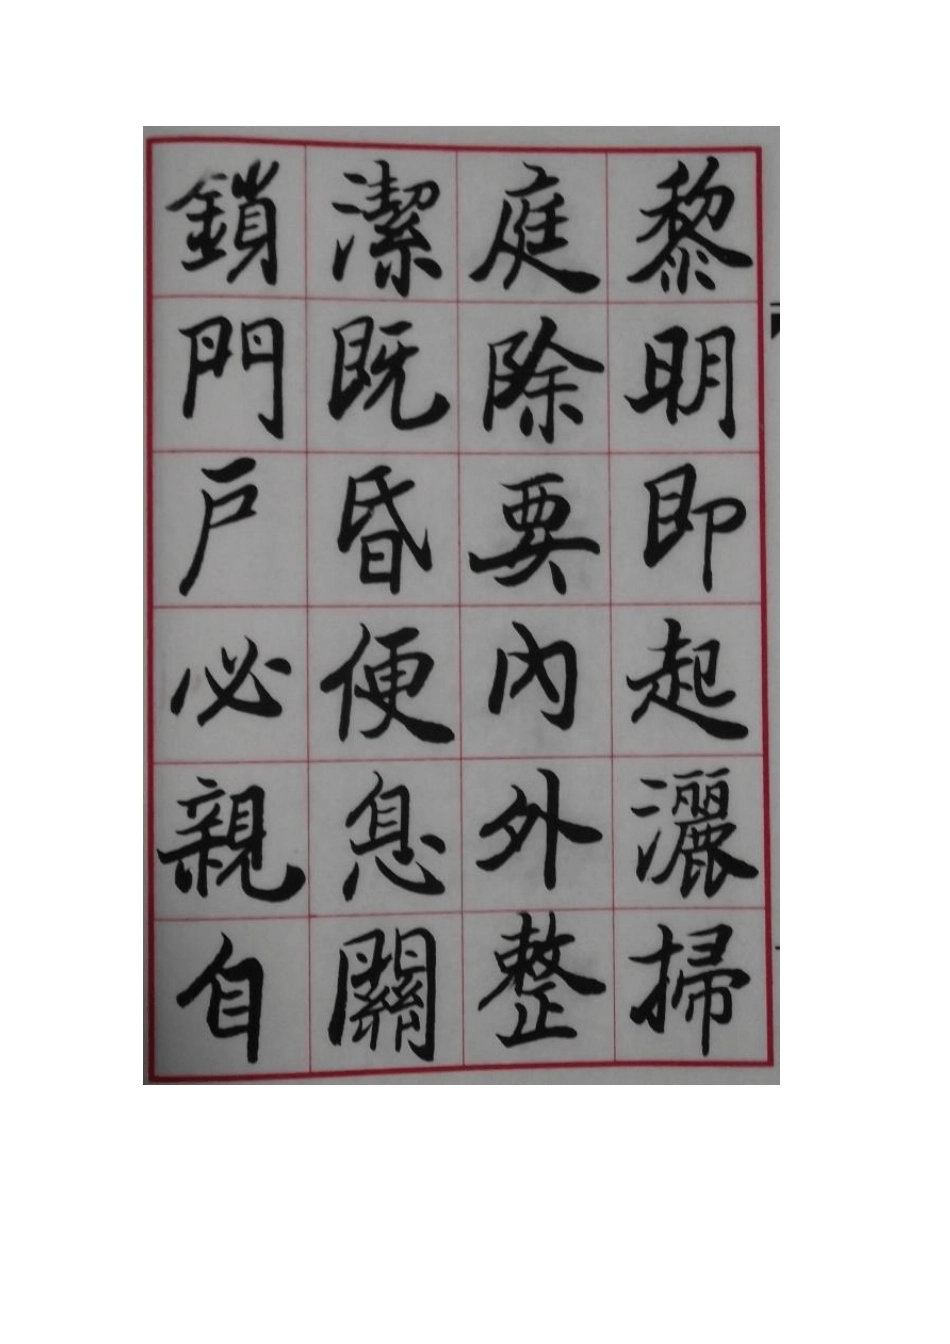 黎明即起灑掃
庭除要內外整
潔既昏便息關
鎖門戶必親自